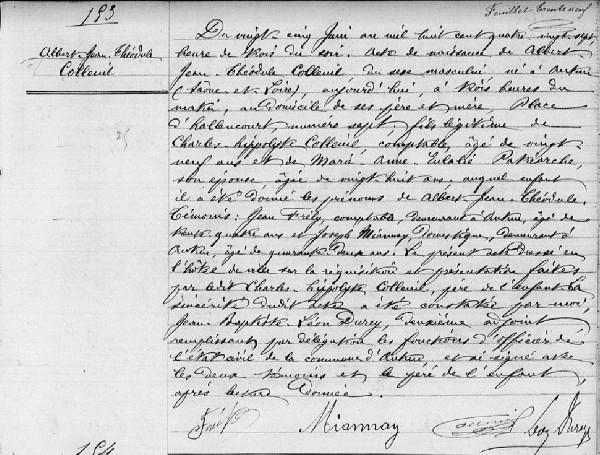 193
Feuillet trente neuf
Albert-Jean-Théodule
Colleuil
Du vingt cinq Juin an mil huit cent quatre vingt-sept
heure de trois du soir. Acte de naissance de Albert-
Jean-Théodule Colleuil du sexe masculin, né à Autun
(Saône-et-Loire), aujourd'hui, à trois heures du
matin, au domicile de ses père et mère, Place
d'hallencourt, numéro sept, fils légitime de
Charles-hippolyte Colleuil, comptable, âgé de vingt
neuf ans et de Marie-Anne-Eulalie Patriarche,
son épouse âgée de vingt huit ans. auquel enfant
il a été donné les prénoms de Albert-Jean-Théodule.
Témoins: Jean Frély, comptable, demeurant à Autun, âgé de
trente quatre ans et Joseph Miannay, domestique, demeurant à
Autun, âgé de quarante-deux ans. Le présent acte dressé en
l'hôtel de ville sur la réquisition et présentation faites
par ledit Charles-hippolyte Colleuil, père de l'enfant. La
sincérité dudit acte a été constatée par moi,
Jean-Baptiste-Léon Durey, deuxième adjoint
remplissant par délégation les fonctions d'officier de
l'état civil de la commune d'Autun et ai signé avec
les deux témoins et le père de l'enfant,
après lecture donnée.
Miannay
Léon Durey
194